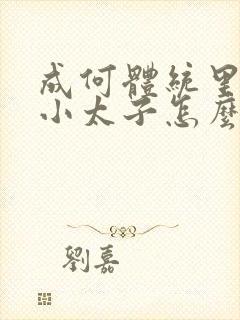 成何體統里
小太子怎麼
劉嘉